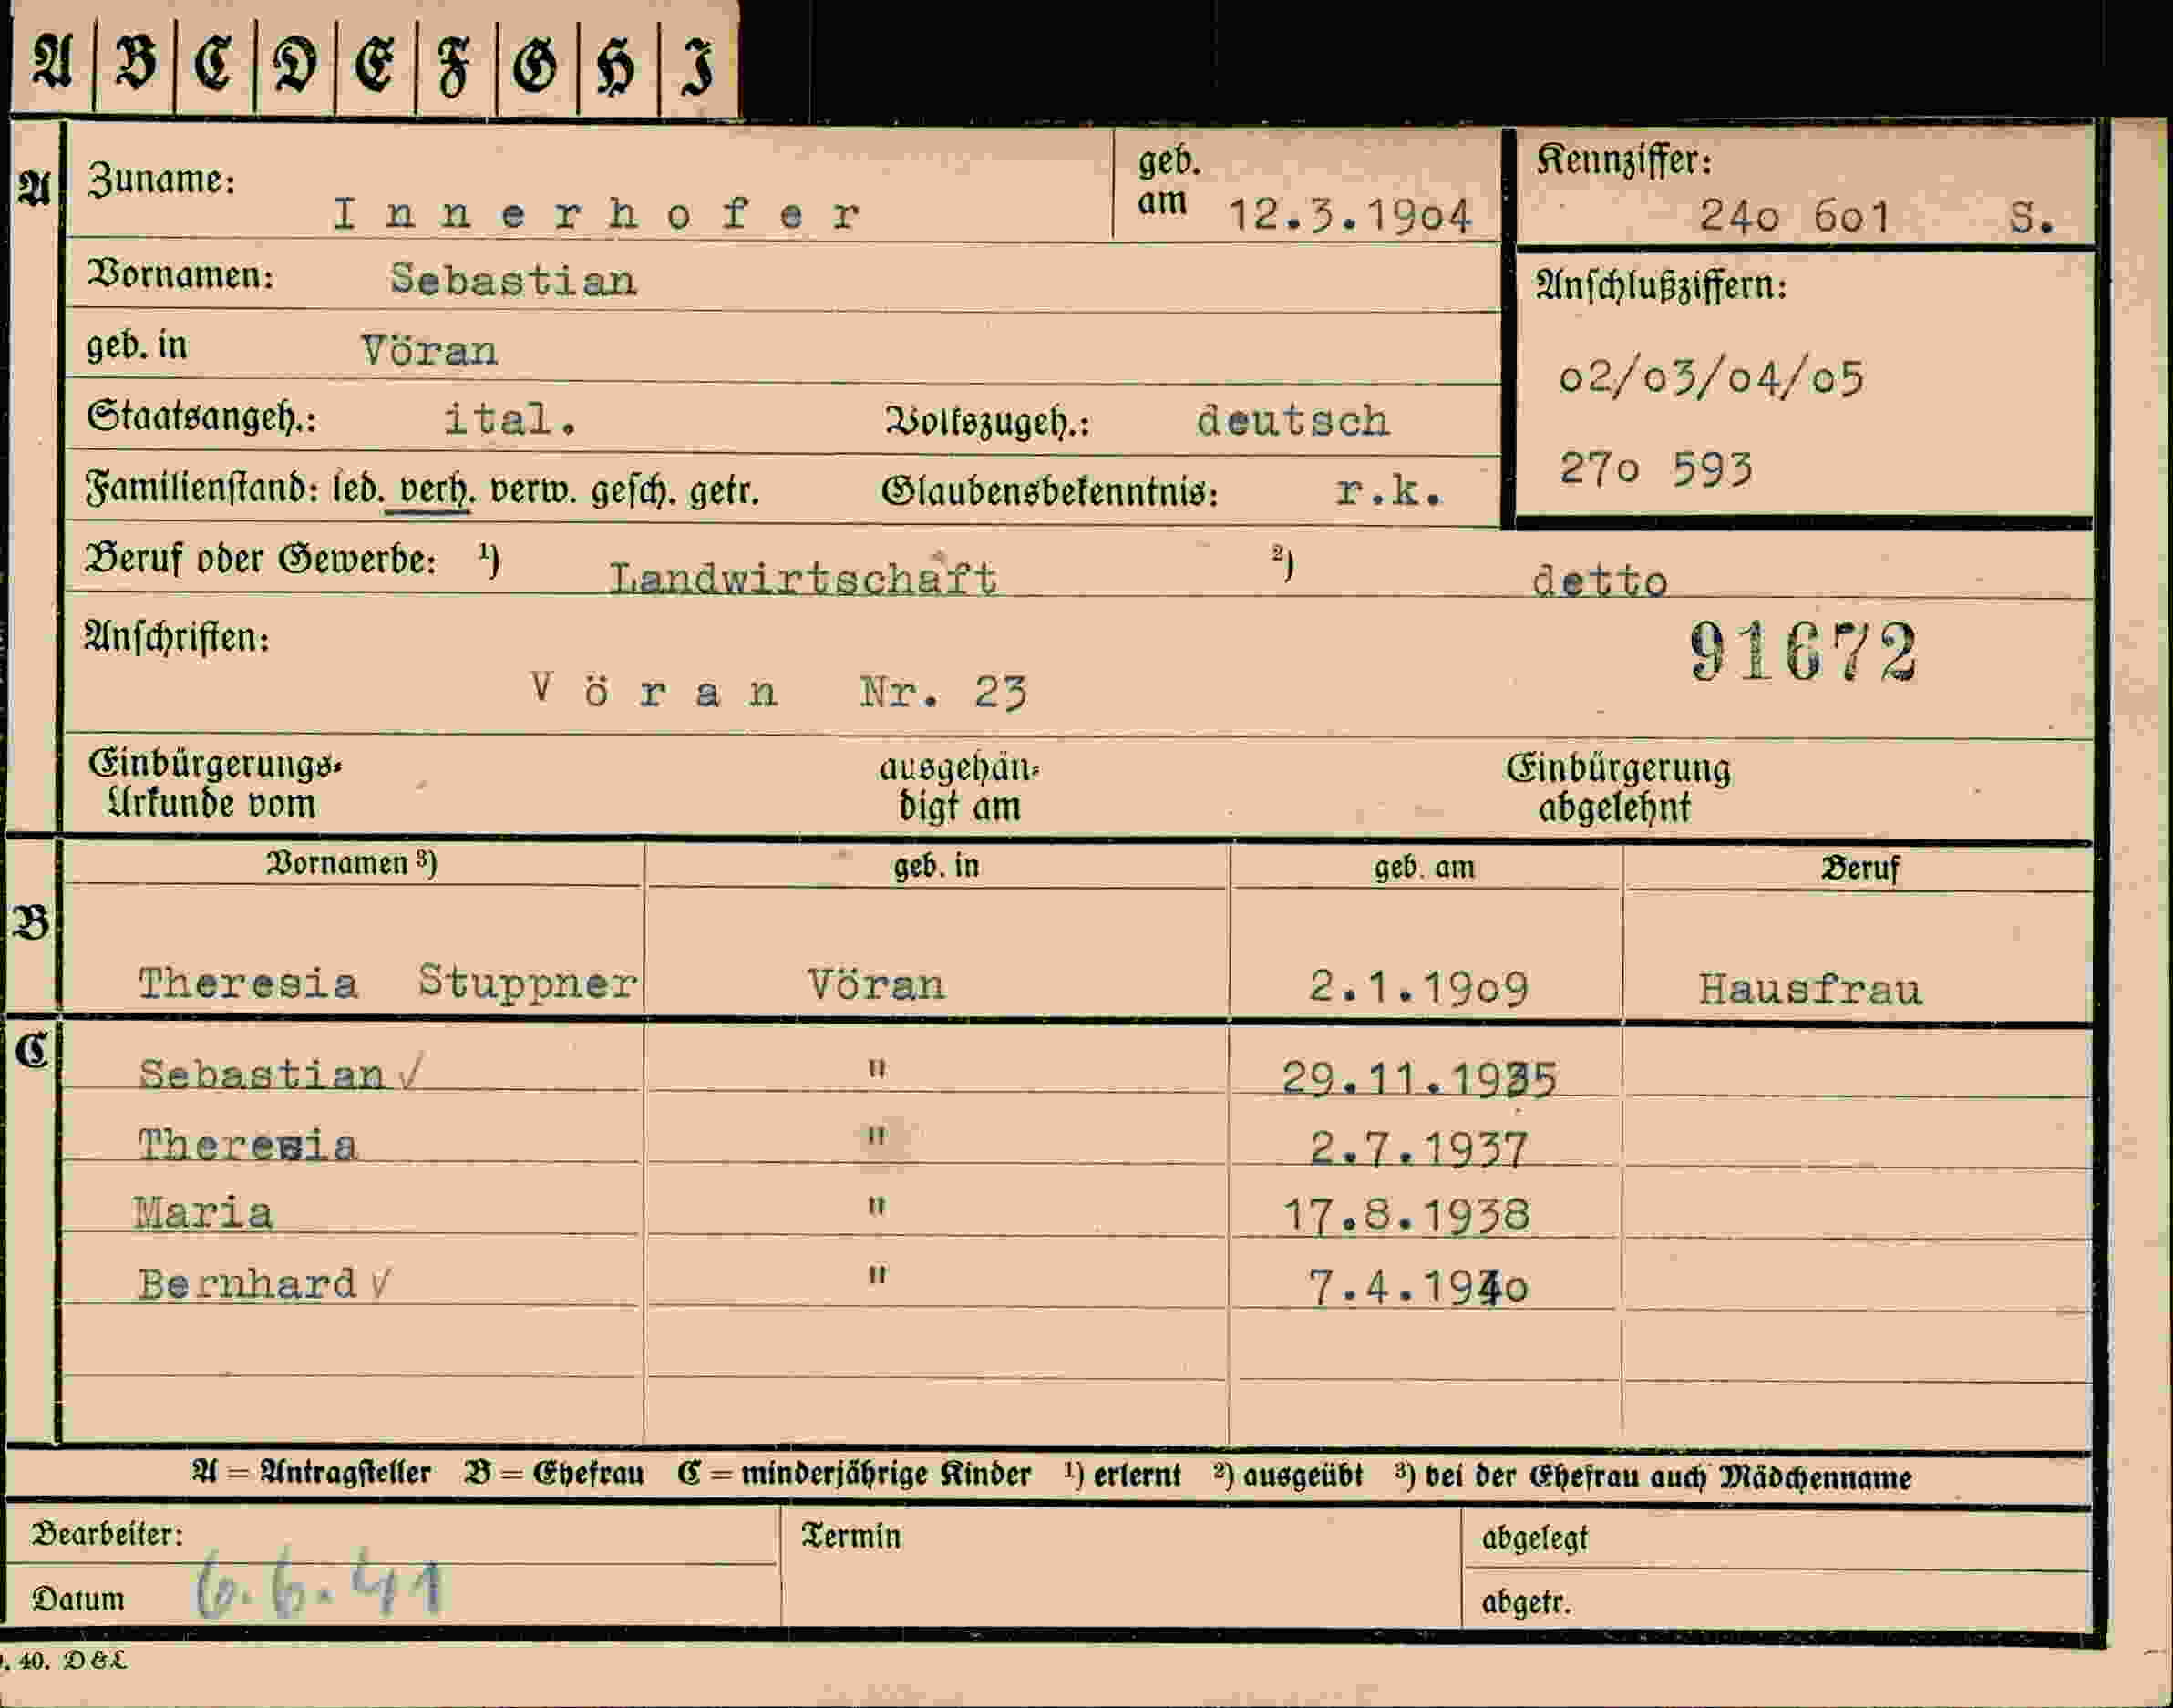 A B C D E F G H I
A Zuname: Innerhofer geb. am 12.3.1904 Kennziffer: 24o 6o1 S.
Vornamen: Sebastian Anschlußziffern:
geb. in Vöran o2/o3/o4/o5
Staatsangeh.: ital. Volkszugeh.: deutsch 27o 593
Familienstand: led. verh. verw. gesch. getr. Glaubensbekenntnis: r.k.
Beruf oder Gewerbe: 1) Landwirtschaft 2) detto
Anschriften: 91672
Vöran Nr. 23
Einbürgerungs- ausgehän- Einbürgerung
Urkunde vom digt am abgelehnt
Vornamen 3) geb. in geb. am Beruf
B Theresia Stuppner Vöran 2.1.19o9 Hausfrau
C Sebastian √ " 29.11.1935
Theresia " 2.7.1937
Maria " 17.8.1938
Bernhard √ " 7.4.194o
A = Antragsteller B = Ehefrau C = minderjährige Kinder 1) erlernt 2) ausgeübt 3) bei der Ehefrau auch Mädchenname
Bearbeiter: Termin abgelegt
Datum 6.6.41 abgetr.
. 40. D&L